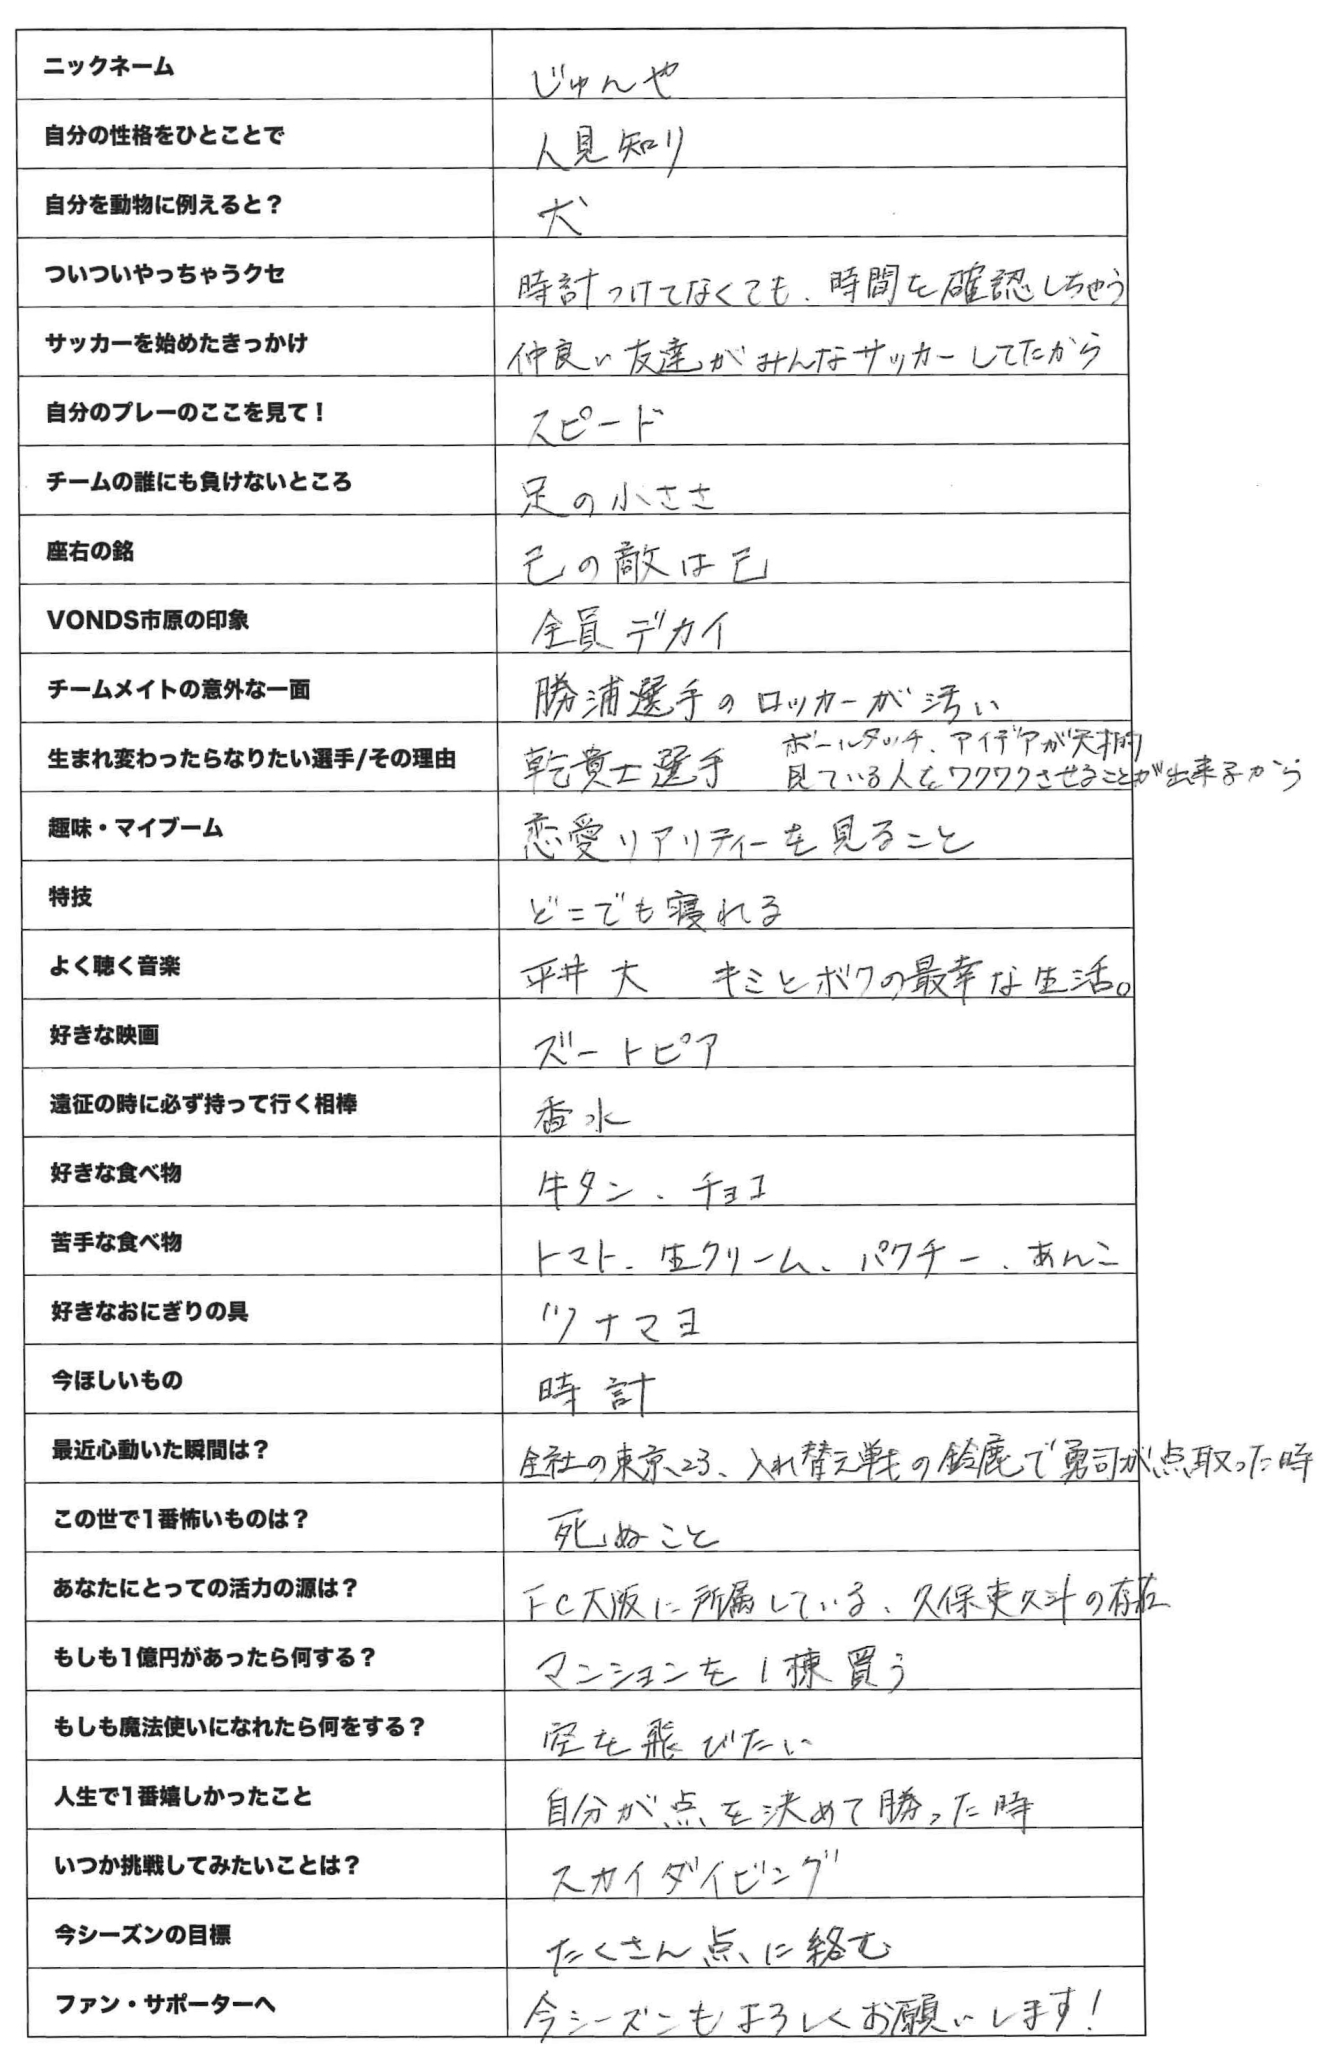 ニックネーム
じゅんや
自分の性格をひとことで
人見知り
自分を動物に例えると？
犬
ついついやっちゃうクセ
時計つけてなくても、時間を確認しちゃう
サッカーを始めたきっかけ
仲良い友達がみんなサッカーしてたから
自分のプレーのここを見て！
スピード
チームの誰にも負けないところ
足の小ささ
座右の銘
己の敵は己
VONDS市原の印象
全員デカイ
チームメイトの意外な一面
勝浦選手のロッカーが汚い
生まれ変わったらなりたい選手/その理由
乾貴士選手
ボールタッチ、アイデアが天才的
見ている人をワクワクさせることが出来るから
趣味・マイブーム
恋愛リアリティーを見ること
特技
どこでも寝れる
よく聴く音楽
平井 大 キミとボクの最幸な生活。
好きな映画
ズートピア
遠征の時に必ず持って行く相棒
香水
好きな食べ物
牛タン、チョコ
苦手な食べ物
トマト、生クリーム、パクチー、あんこ
好きなおにぎりの具
ツナマヨ
今ほしいもの
時計
最近心動いた瞬間は？
全社の東京23、入れ替え戦の鈴鹿で勇司が点取った時
この世で1番怖いものは？
死ぬこと
あなたにとっての活力の源は？
FC大阪に所属している、久保吏久斗の存在
もしも1億円があったら何する？
マンションを1棟買う
もしも魔法使いになれたら何をする？
空を飛びたい
人生で1番嬉しかったこと
自分が点を決めて勝った時
いつか挑戦してみたいことは？
スカイダイビング
今シーズンの目標
たくさん点に絡む
ファン・サポーターへ
今シーズンもよろしくお願いします！